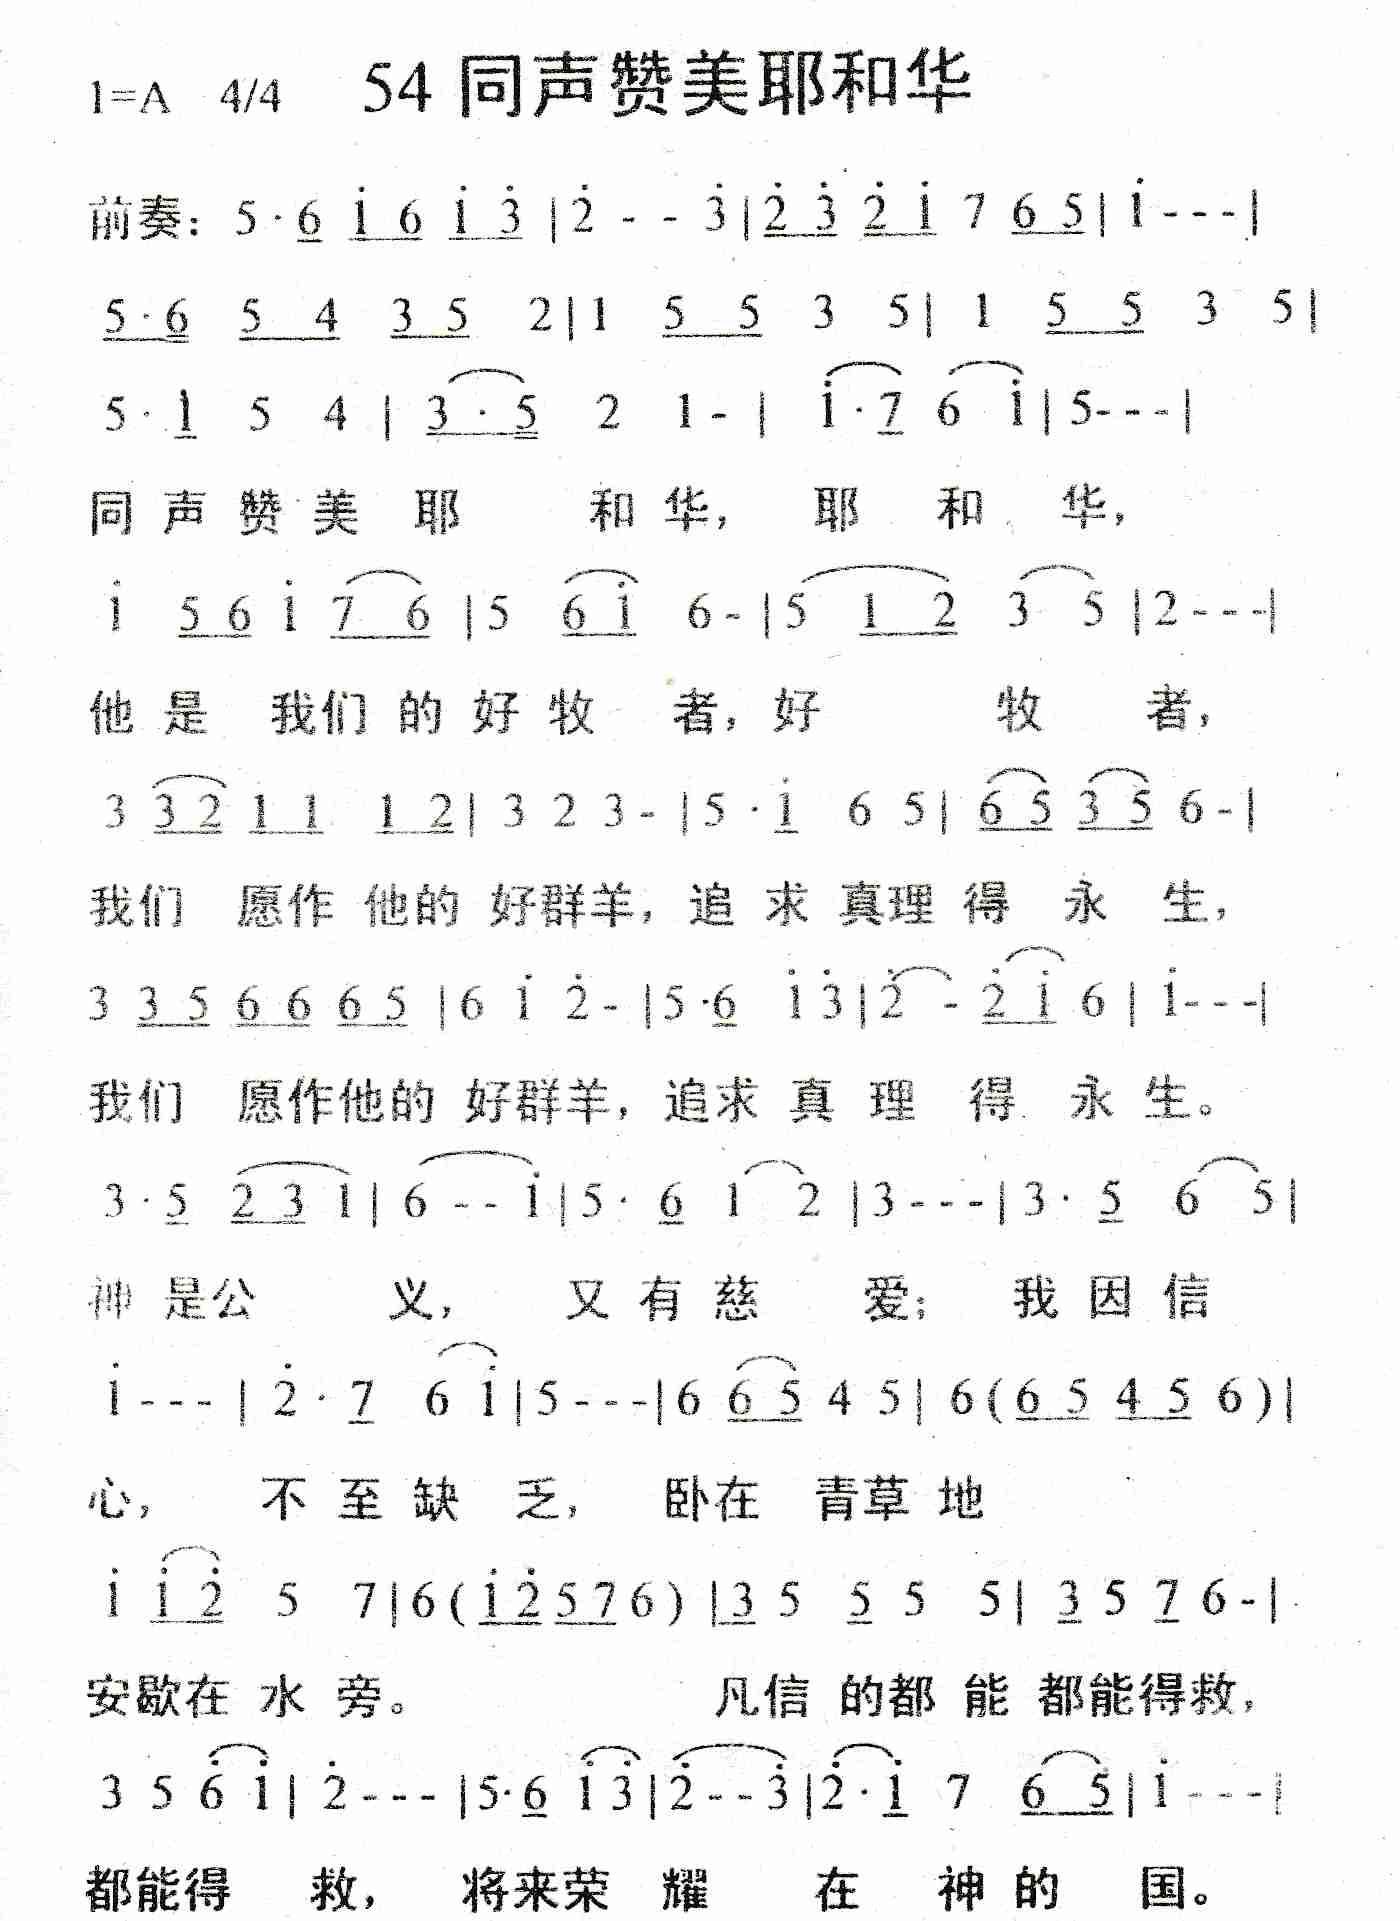 1=A 4/4 54 同声赞美耶和华
前奏: 5·6 i 6 i 3̇ |2̇ - - 3̇|2̇ 3̇ 2̇ i 7 6 5| i---|
5·6 5 4 3 5 2|1 5 5 3 5| 1 5 5 3 5|
5·i 5 4 | 3·5 2 1- | i·7 6 i|5---|
同 声 赞 美 耶 和 华, 耶 和 华,
i 5 6 i 7 6 |5 6 i 6-|5 1 2 3 5 |2---|
他 是 我们 的 好 牧 者, 好 牧 者,
3 3 2 1 1 1 2| 3 2 3- |5·i 6 5| 6 5 3 5 6-|
我们 愿作 他的 好群羊, 追 求 真理 得 永 生,
3 3 5 6 6 6 5 |6 i 2̇- |5·6 i 3̇|2̇ - 2̇ i 6 | i---|
我们 愿作他的 好群羊, 追求 真 理 得 永 生。
3·5 2 3 1| 6 -- i|5·6 1 2 |3---|3·5 6 5|
神 是公 义, 又 有 慈 爱; 我 因 信
i--- | 2̇·7 6 i|5---|6 6 5 4 5| 6(6 5 4 5 6)|
心, 不 至 缺 乏, 卧在 青草 地
i i 2̇ 5 7|6(i 2̇ 5 7 6) |3 5 5 5 5| 3 5 7 6-|
安歇在 水 旁。 凡信 的都 能 都能得救,
3 5 6̇ i| 2̇--- |5·6 i 3̇|2̇--3̇|2̇·i 7 6 5| i---|
都能得 救, 将来荣 耀 在 神 的 国。